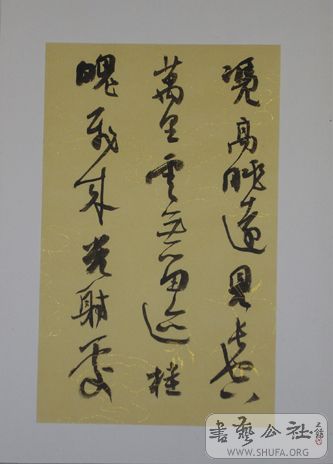 凴高眺遠見長空
萬里雲無留迹桂
魄飛來光射處
書藝公社
WWW.SHUFA.ORG